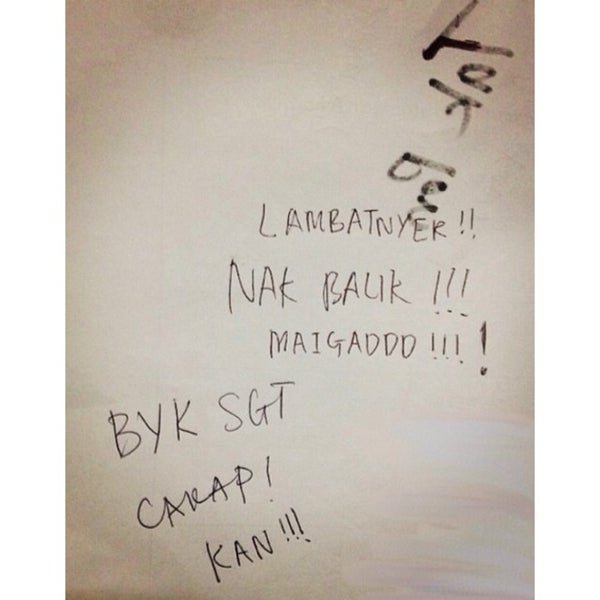 LAMBATNYER!!
NAK BALIK !!!
MAIGADDD !!! !
BYK SGT
CAKAP!
KAN!!!